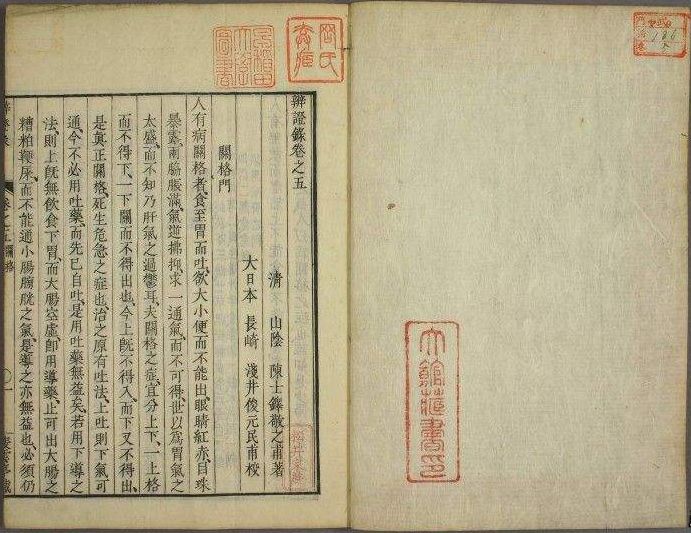 辨證錄卷之五
清　山陰　陳士鐸敬之甫著
大日本　長崎　淺井俊元民甫校
關格門
人有病關格者食至胃而吐欲大小便而不能出眼睛紅赤目珠
暴露兩脇脹滿氣逆拂抑求一通氣而不可得世以爲胃氣之
太盛而不知乃肝氣之過鬱耳夫關格之症宜分上下一上格
而不得下一下關而不得出也今上旣不得入而下又不得出
是眞正關格死生危急之症也治之原有吐法上吐則下氣可
通今不必用吐藥而先已自吐是用吐藥無益矣若用下導之
法則上旣無飮食下胃而大腸空虛卽用導藥止可出大腸之
糟粕鞕屎而不能通小腸膀胱之氣是導之亦無益也必須仍